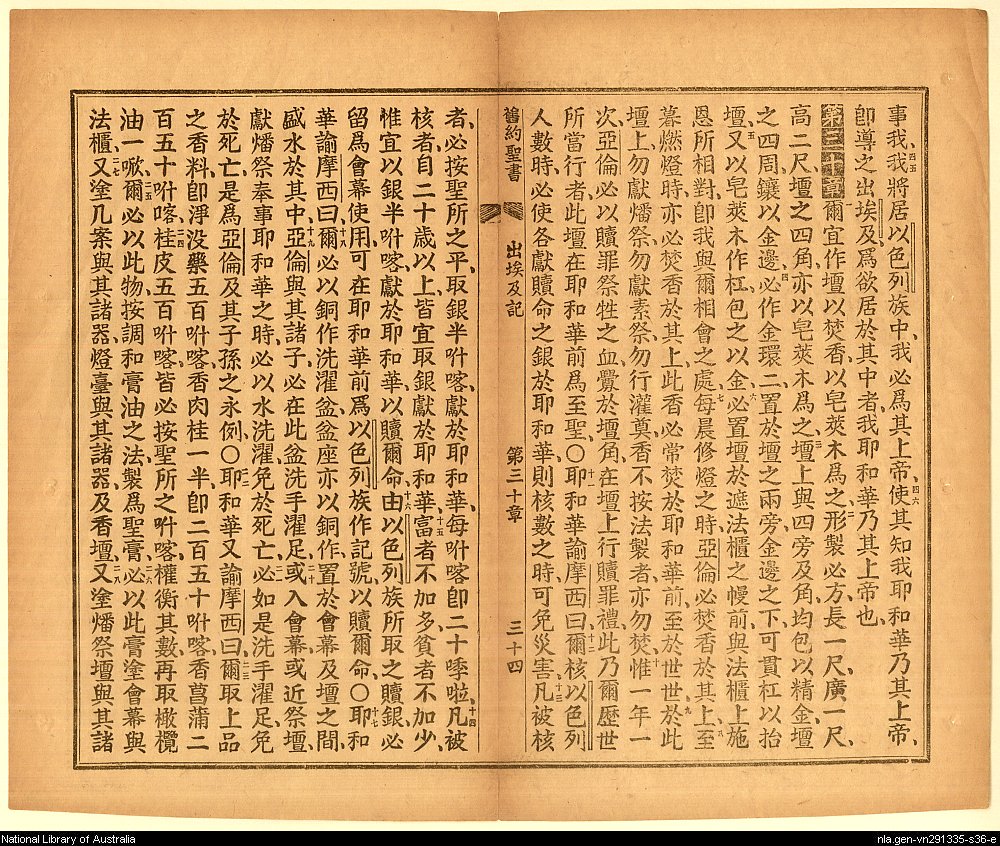 事我、我將居以色列族中、我必爲其上帝、使其知我耶和華乃其上帝、
卽導之出埃及、爲欲居於其中者、我耶和華乃其上帝也、
第三十章 爾宜作壇以焚香、以皂莢木爲之、形製必方、長一尺、廣一尺、
高二尺、壇之四角、亦以皂莢木爲之、壇上與四旁及角、均包以精金、壇
之四周鑲以金邊、必作金環二、置於壇之兩旁金邊之下、可貫杠以抬
壇、又以皂莢木作杠、包之以金、必置壇於遮法櫃之幔前、與法櫃上施
恩所相對、卽我與爾相會之處、每晨修燈之時、亞倫必焚香於其上、至
暮燃燈時、亦必焚香於其上、此香必常焚於耶和華前、至於世世、於此
壇上、勿獻燔祭、勿獻素祭、勿行灌奠、香不按法製者、亦勿焚、惟一年一
次、亞倫必以贖罪祭牲之血、釁於壇角、在壇上行贖罪禮、此乃爾歷世
所當行者、此壇在耶和華前爲至聖、〇耶和華諭摩西曰、爾核以色列
人數時、必使各獻贖命之銀於耶和華、則核數之時、可免災害、凡被核
舊約聖書 出埃及記 第三十章 三十四
者、必按聖所之平、取銀半咐喀、獻於耶和華、每咐喀卽二十季啦、凡被
核者、自二十歲以上、皆宜取銀獻於耶和華、富者不加多、貧者不加少、
惟宜以銀半咐喀、獻於耶和華、以贖爾命、由以色列族所取之贖銀、必
留爲會幕使用、可在耶和華前、爲以色列族作記號、以贖爾命、〇耶和
華諭摩西曰、爾必以銅作洗濯盆、盆座亦以銅作、置於會幕及壇之間、
盛水於其中、亞倫與其諸子、必在此盆洗手濯足、或入會幕、或近祭壇
獻燔祭奉事耶和華之時、必以水洗濯、免於死亡、必如是洗手濯足、免
於死亡、是爲亞倫及其子孫之永例、〇耶和華又諭摩西曰、爾取上品
之香料、卽淨沒藥五百咐喀、香肉桂一半、卽二百五十咐喀、香菖蒲二
百五十咐喀、桂皮五百咐喀、皆必按聖所之咐喀權衡其數、再取橄欖
油一㖔、爾必以此物、按調和膏油之法、製爲聖膏、必以此膏塗會幕與
法櫃、又塗几案與其諸器、燈臺與其諸器、及香壇、又塗燔祭壇與其諸
National Library of Australia
nla.gen-vn291335-s36-e